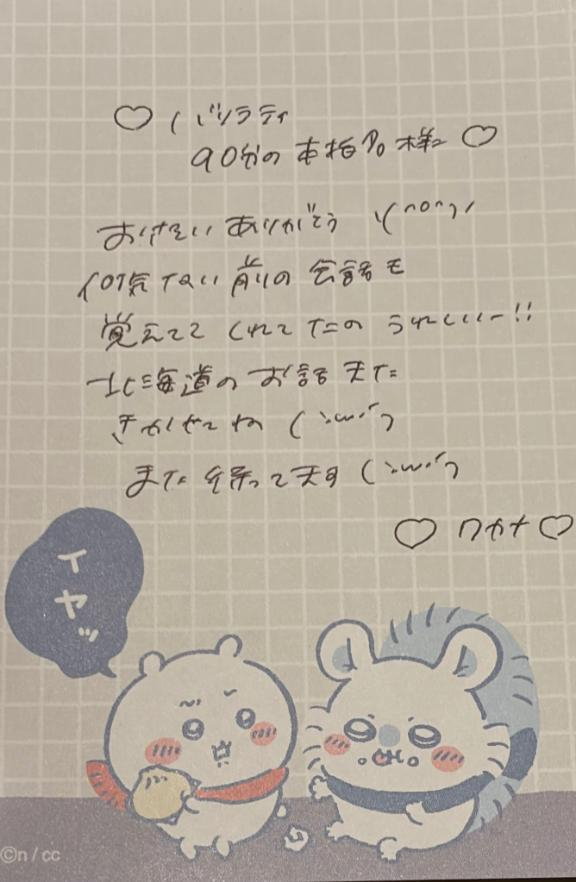 ♡ バリラティ
90分の本指名様 ♡
おけさい ありがとう \(^o^)/
何気ない前の会話を
覚えててくれてたの うれしいー!!
北海道のお話また
きかせてね (´･ω･`)
また待ってます (´･ω･`)
♡ワカナ♡
イヤッ
©n/cc